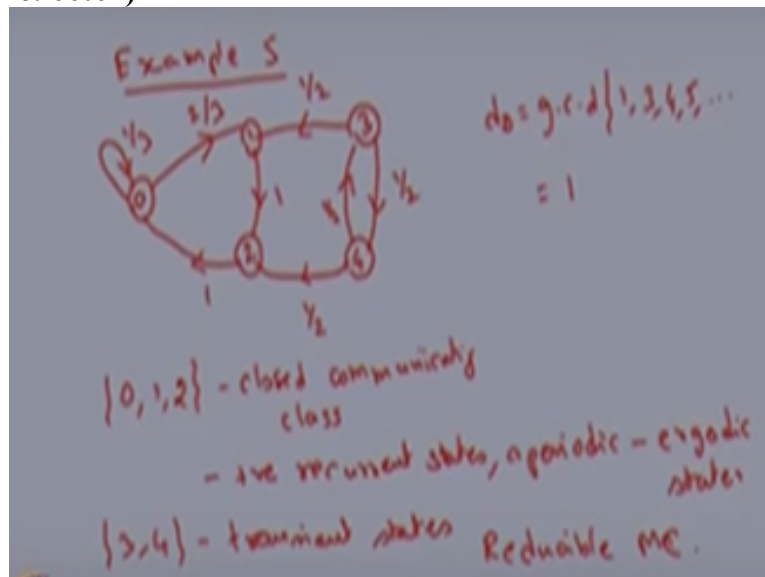 Example 5
1/3
2/3
1/2
0
1
3
1
1/2
2
4
1
1/2
d₀ = g.c.d {1, 3, 4, 5, ...
= 1
{0, 1, 2} - closed communicating
class
- +ve recurrent states, aperiodic - ergodic
states
{3, 4} - transient states Reducible MC.